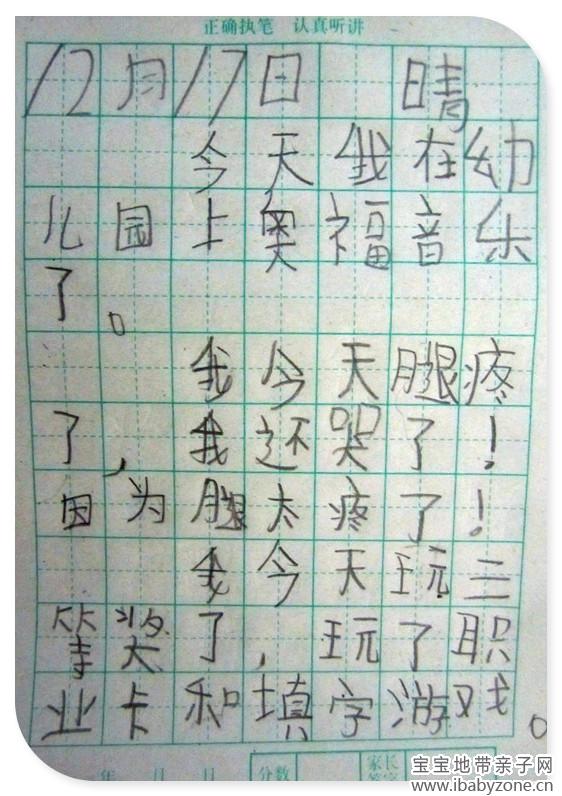 正确执笔 认真听讲
12月17日 晴
今天我在幼
儿园上奥福音乐
了。
我今天腿疼
了,我还哭了!
因为腿太疼了!
我今天玩三
等奖了,玩了职
业卡和填字游戏。
年 月 日 分数 家长
签字
宝宝地带亲子网
www.ibabyzone.cn